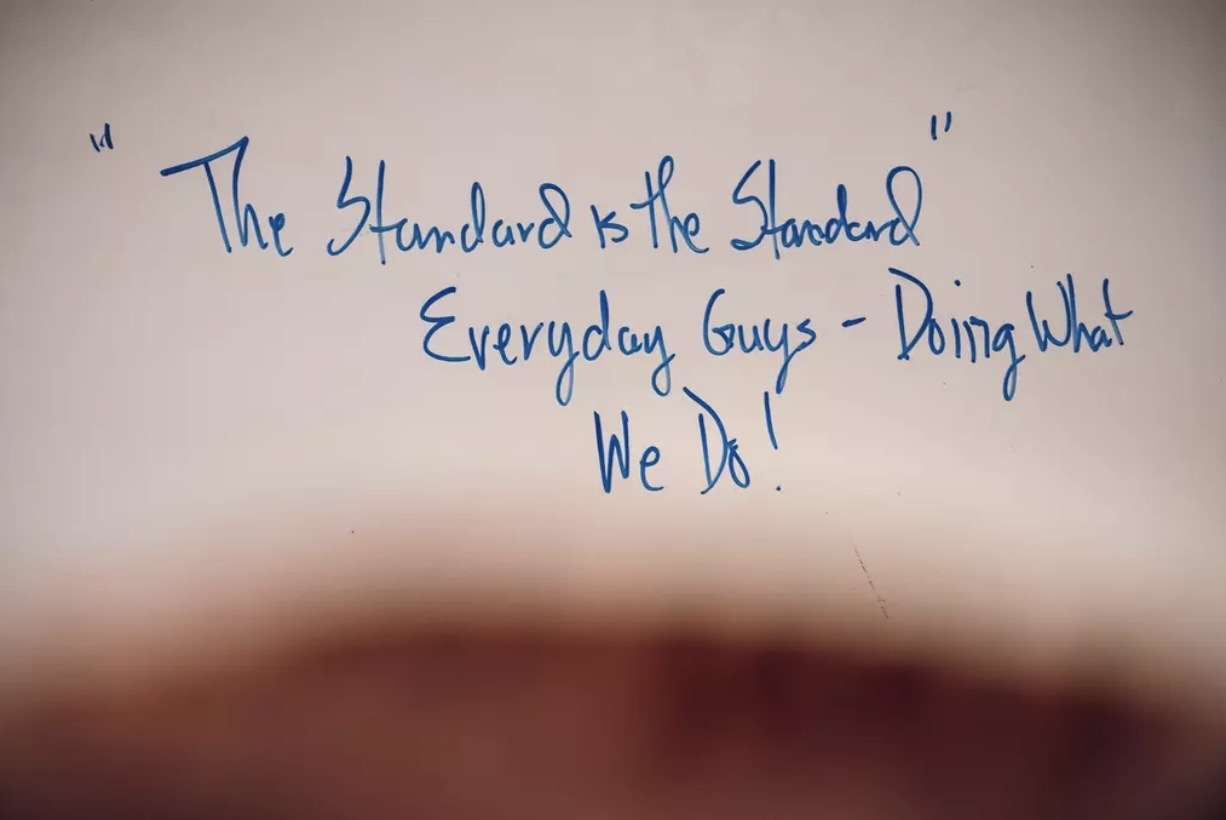 "The Standard is the Standard"
Everyday Guys - Doing What
We Do!